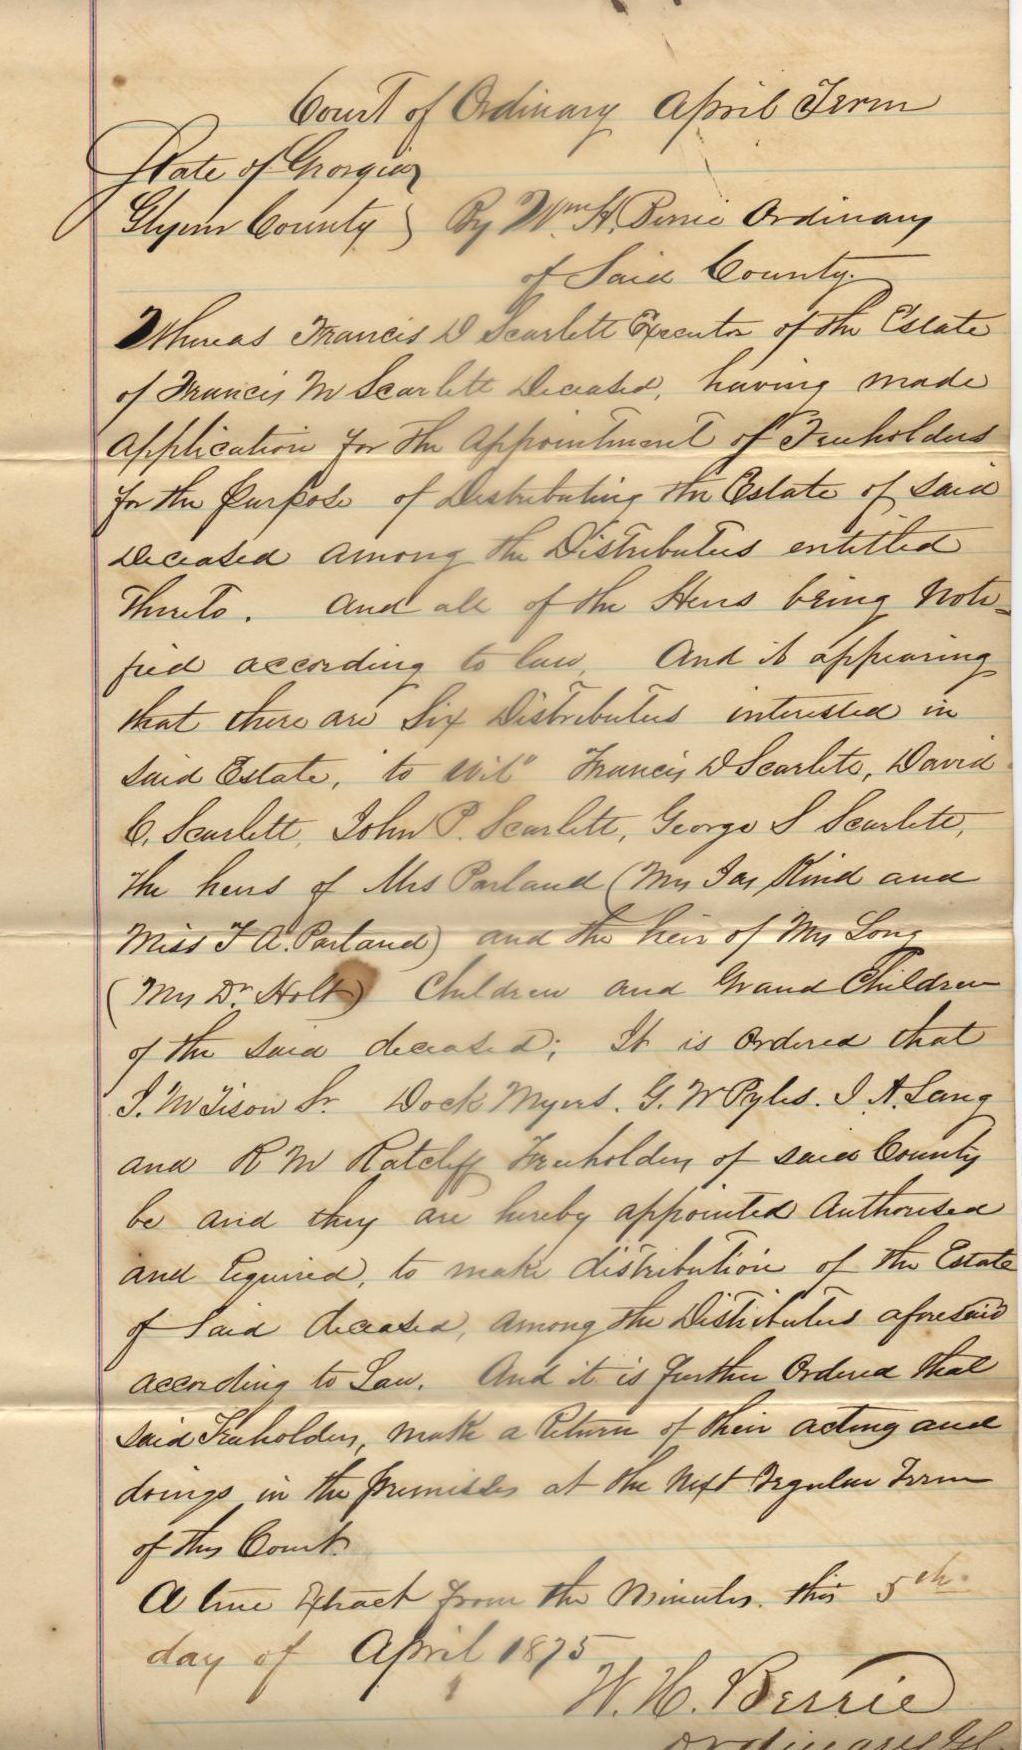 Court of Ordinary April Term
State of Georgia
Glynn County } By Wm. H. Berrie Ordinary
of Said County.
Whereas Francis D Scarlett Executor of the Estate
of Francis M Scarlett Deceased, having made
application for the appointment of Freeholders
for the Purpose of Distributing the Estate of said
Deceased among the Distributees entitled
thereto. And all of the Heirs being Noti=
fied according to law, And it appearing
that there are Six Distributees interested in
said Estate, "to wit" Francis D Scarlett, David
C. Scarlett, John P. Scarlett, George S Scarlett,
the heirs of Mrs Parland (Mrs Jas and
Miss F A. Parland) and the heir of Mrs Long
(Mrs Dr. Holt) Children and Grand Children
of the said deceased; It is ordered that
J. M Tison Sr. Dock Myers. G. W Pyles. J. A. Lang
and R M Ratcliff Freeholders of said County
be and they are hereby appointed Authorised
and Required, to make distribution of the Estate
of Said deceased, among the Distributees aforesaid
according to Law. And it is further Ordered that
said Freeholders, make a Return of their acting and
doings in the premises at the Next Regular Term
of this Court.
A true Extract from the Minutes. this 5th.
day of April 1875
W. H. Berrie
Ordinary